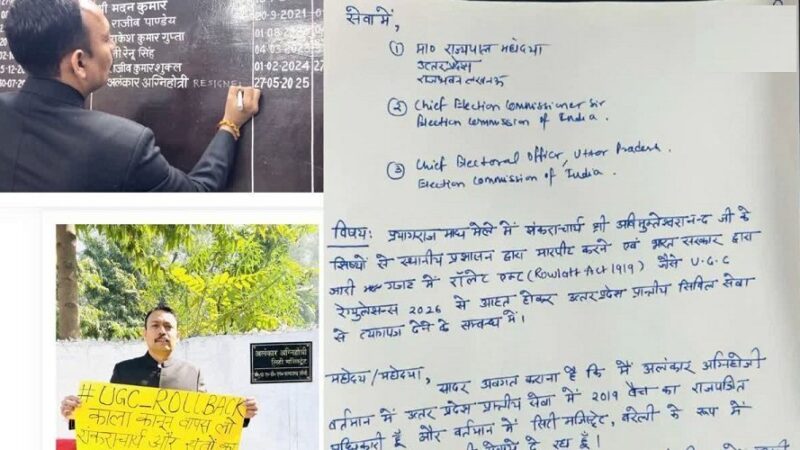 श्री मदन कुमार
राजीव पाण्डेय 20-9-2021
राकेश कुमार गुप्ता 01-08
रेनू सिंह 04-03
राजीव कुमार शुक्ल 01-02-2024 27
अलंकार अग्निहोत्री RESIGNE 27-05-2025
सेवा में,
① मा० राज्यपाल महोदया
उत्तर प्रदेश
राजभवन लखनऊ
② Chief Election Commissioner Sir
Election Commission of India.
③ Chief Electoral Officer, Uttar Pradesh.
Election Commission of India.
विषय: प्रयागराज माघ मेले में शंकराचार्य श्री अविमुक्तेश्वरानन्द जी के
शिष्यों से स्थानीय प्रशासन द्वारा मारपीट करने एवं भारत सरकार द्वारा
जारी गजट में रॉलेट एक्ट (Rowlatt Act 1919) जैसे U.G.C
रेगुलेसन्स 2026 से आहत होकर उत्तर प्रदेश प्रान्तीय सिविल सेवा
से त्यागपत्र देने के सम्बन्ध में।
महोदय/महोदया,
सादर अवगत कराना है कि मैं अलंकार अग्निहोत्री
वर्तमान में उत्तर प्रदेश प्रान्तीय सेवा में 2019 बैच का राजपत्रित
अधिकारी हूँ और वर्तमान में सिटी मजिस्ट्रेट, बरेली के रूप में
दे रहा हूँ।
अलंकार अग्निहोत्री
सिटी मजिस्ट्रेट
#UGC_ROLLBACK
काला कानून वापस लो
शंकराचार्य और संतों का